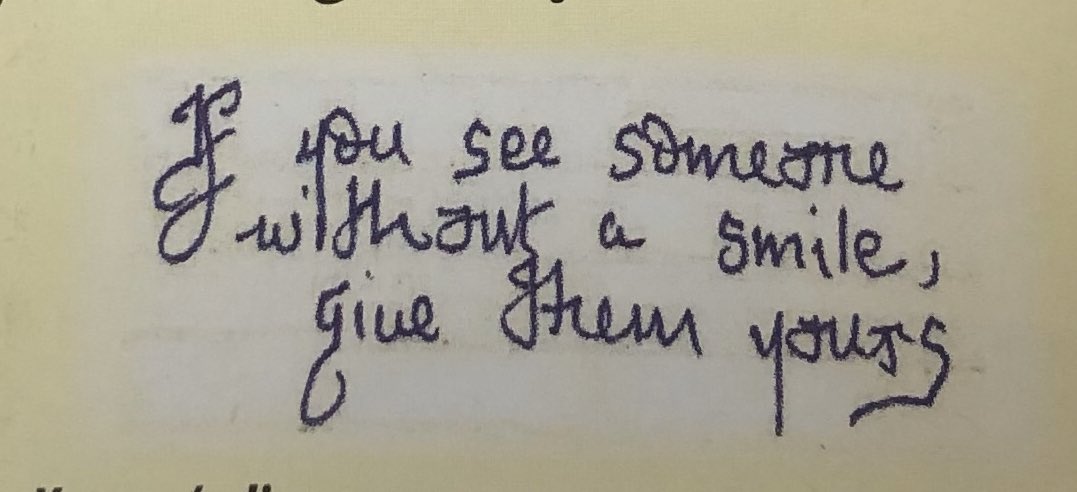 If you see someone
without a smile,
give them yours